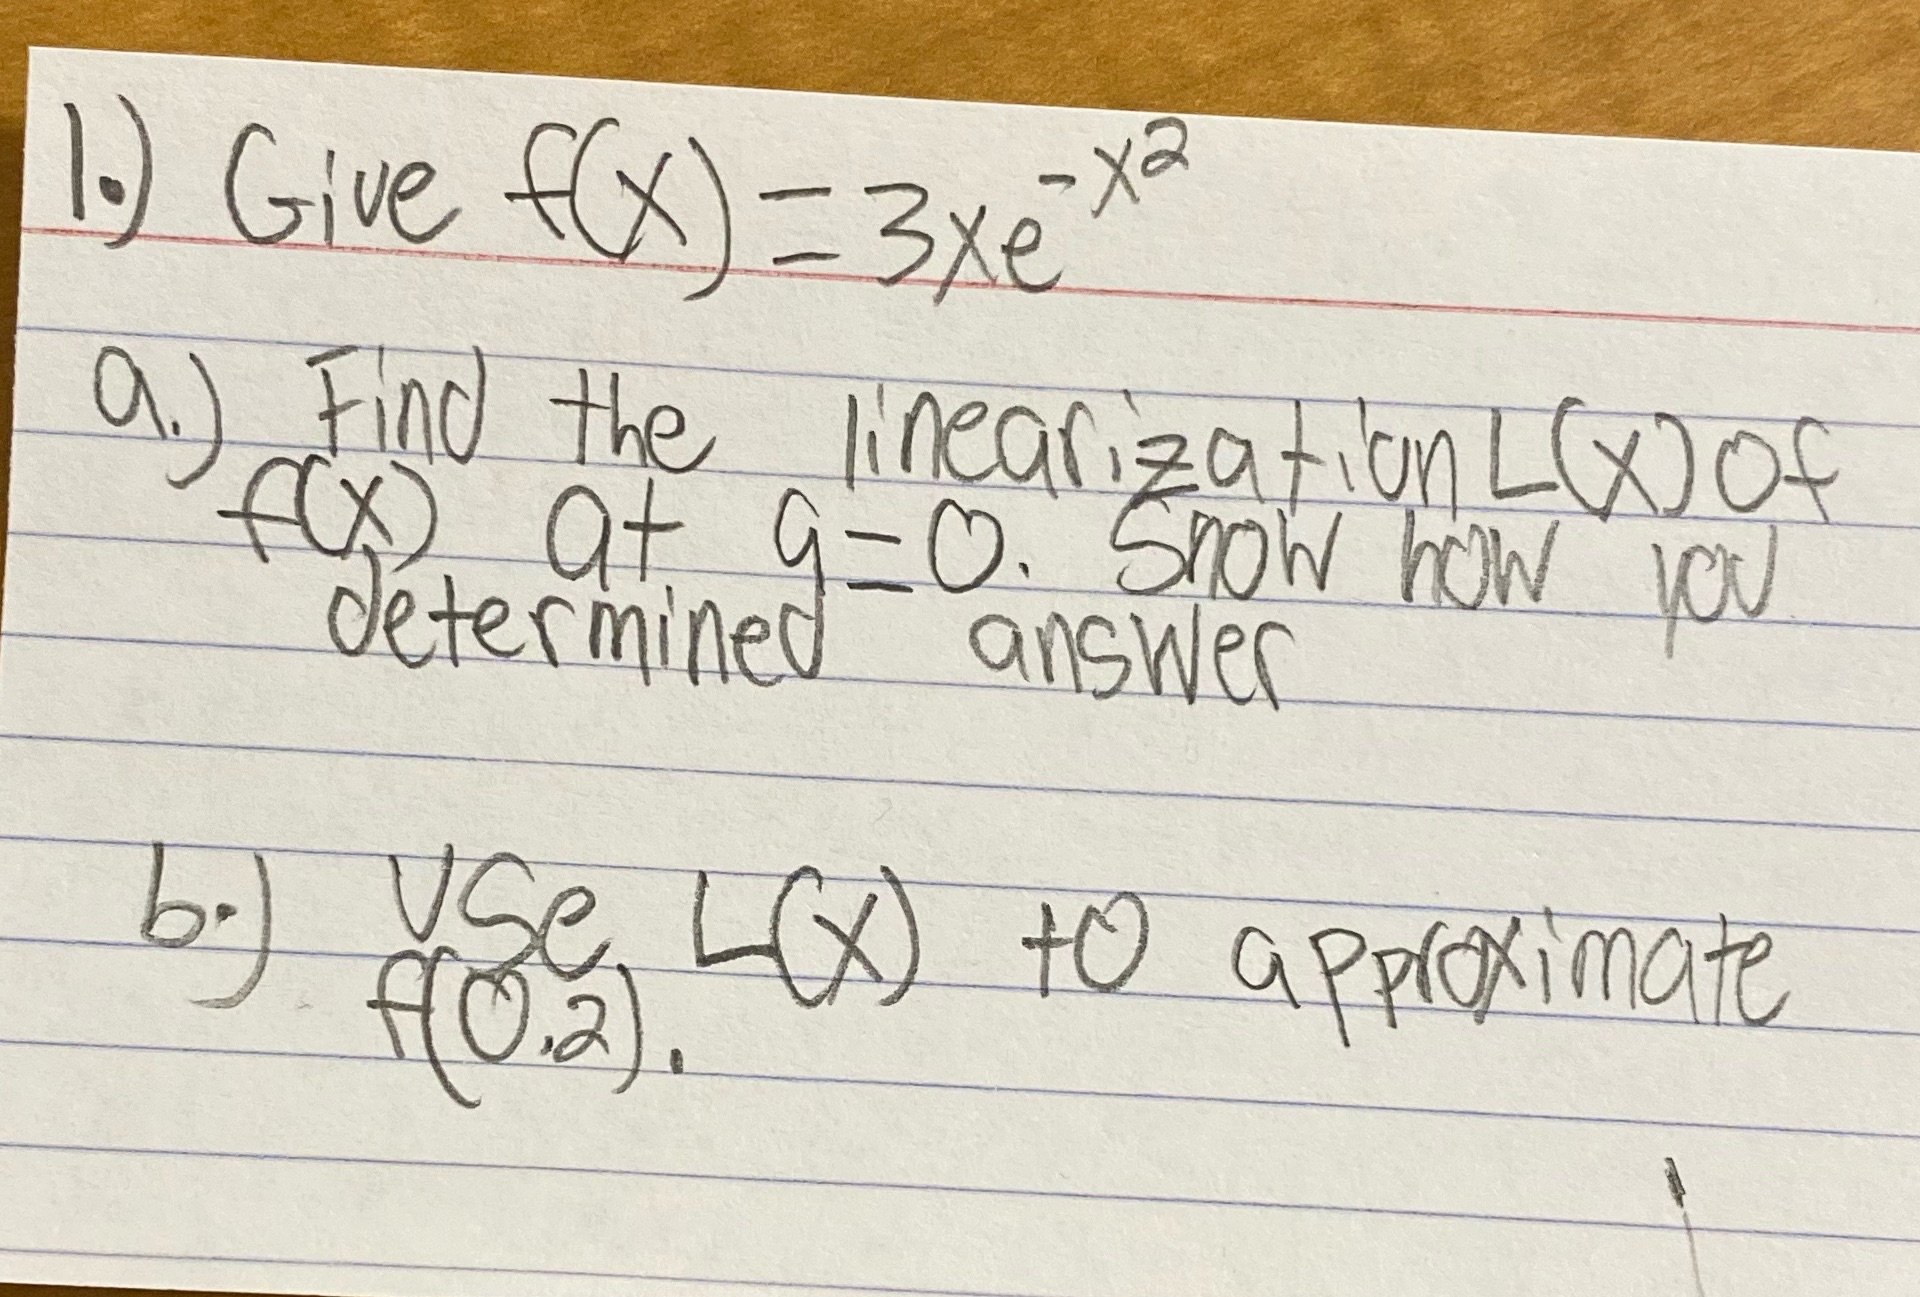 1.) Give f(x) = 3xe^-x^2
a.) Find the linearization L(x) of
f(x) at a=0. Show how you
determined answer
b.) Use L(x) to approximate
f(0.2).